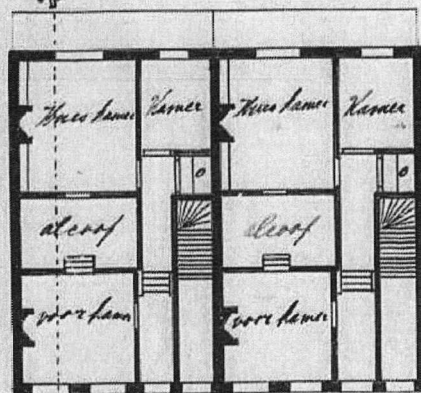 Huiskamer Kamer Huiskamer Kamer
alcoof alcoof
voorkam voorkamer